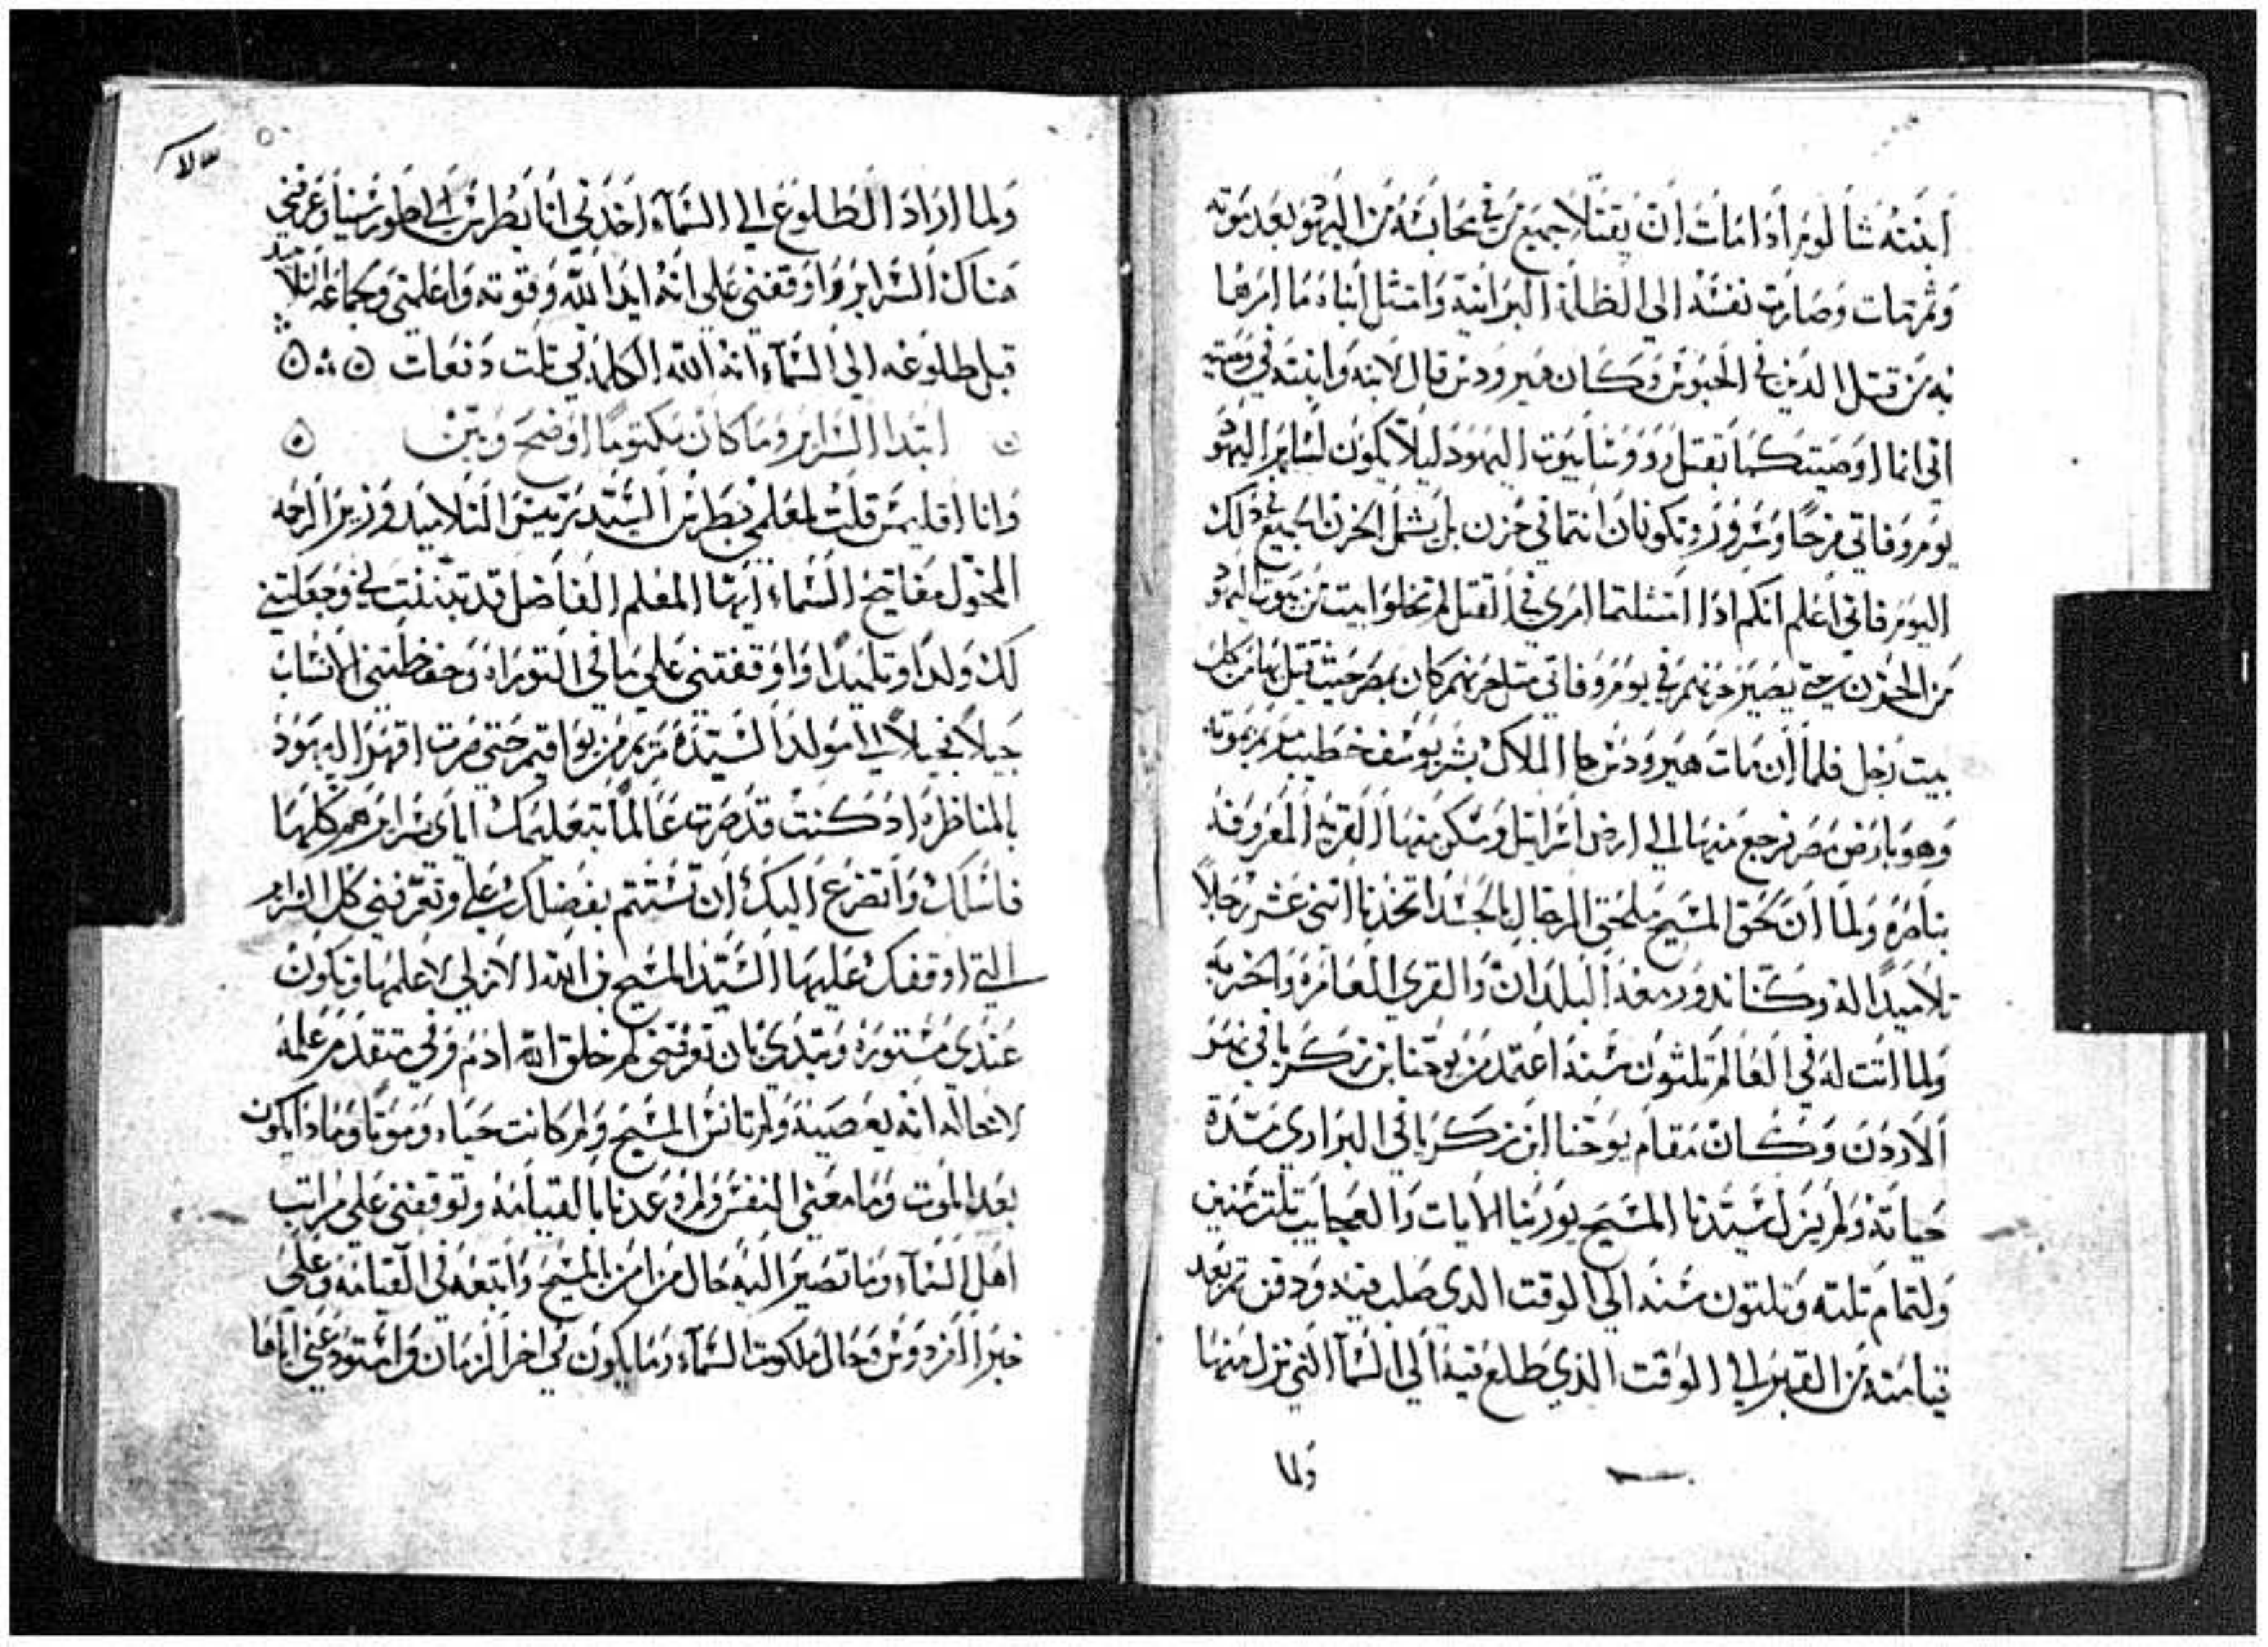 ابنته شالومر اذا مات ان يقتلا جميع من في محابسه من اليهود بعد موته
وثم مات وصارت نفسه الى الظلمة البرانية وامتثل ابناه ما امرهما
به من قتل الذين في الحبوس وكان هيرودس قال لابنه وابنته في وصيته
اني انما اوصيتكما بقتل رووسا بيوت اليهود ليلا يكون لساير اليهود
يوم وفاتي فرحا وسرور وتكونان انتما في حزن بل يشمل الحزن الجميع في ذلك
اليوم فاني اعلم انكم اذا امتثلتما امري في القتل لم تخلوا بيت من بيوت اليهود
من الحزن حتي يصير حزنهم في يوم وفاتي مثل حزنهم كان بمصر حيث قتل بها من كل
بيت رجل فلما ان مات هيرودس جا الملاك بشر يوسف خطيب مريم بموته
وهو بارض مصر فرجع منها الى ارض اسرائيل وسكن منها القرية المعروفة
بناصرة ولما ان لحق المسيح ملحق الرجال بالجسد اتخذنا اثني عشر رجلاً
تلاميدا له وكنا ندور معه البلدان والقرى العامرة والخربة
ولما اتت له في العالم ثلثون سنة اعتمد من يوحنا ابن زكريا في نهر
الاردن وكان مقام يوحنا ابن زكريا في البراري مدة
حياته ولم يزل سيدنا المسيح يورينا الايات والعجايب ثلت سنين
ولتمام تلته وتلتون سنه الى الوقت الدي صلب فيه ودفن ثم بعد
قيامته من القبر الى الوقت الذي طلع فيه الى السما التي نزل منها
ولما
ولما اراد الطلوع الي السماء اخذني انا بطرس الى طور سينا وعرفني
هناك السراير واوقفني علي انه ابد الله وقوته واعلمني وجماعة التلاميد
قبل طلوعه الى السماء انه الله الكلمة في تلت دفعات
ابتدا السراير وما كان مكتوما اوضح وبين
وانا اقليمس قلت لمعلمي بطرس السيد رييس التلاميد وزير الرحمه
المخول مفاتيح السماء ايها المعلم الفاضل قد تبننت بي وجعلتني
لك ولدا وتلميدا واوقفتني علي ما في التوراه وحفظتني الانساب
جيلا فجيلا الى مولد السيدة مريم من يواقيم حتي صرت اقهر اليهود
بالمناظره اد كنت قد صرت عالما بتعليمك اياي سرايرهم كلها
فاسلك واتضرع اليك ان تستتم بفضلك علي وتعرفني كل السراير
التي اوقفك عليها السيد المسيح بن الله الازلي لاعلمها وتكون
عندي مستورة وتبتدي بان تعرفني لم خلق الله ادم وفي متقدم علمه
لا محاله انه يعصيه ولم تانس المسيح ولم كانت حياه وموتا وما دا يكون
بعد الموت وما معني النفس ولم وعدنا بالقيامه وتوقفني علي مراتب
اهل السماء وما تصير اليه حال من امن بالمسيح واتبعه في القيامة وعلي
خبر الفردوس وحال ملكوت السماء وما يكون في اخر الزمان واستودعني اياها